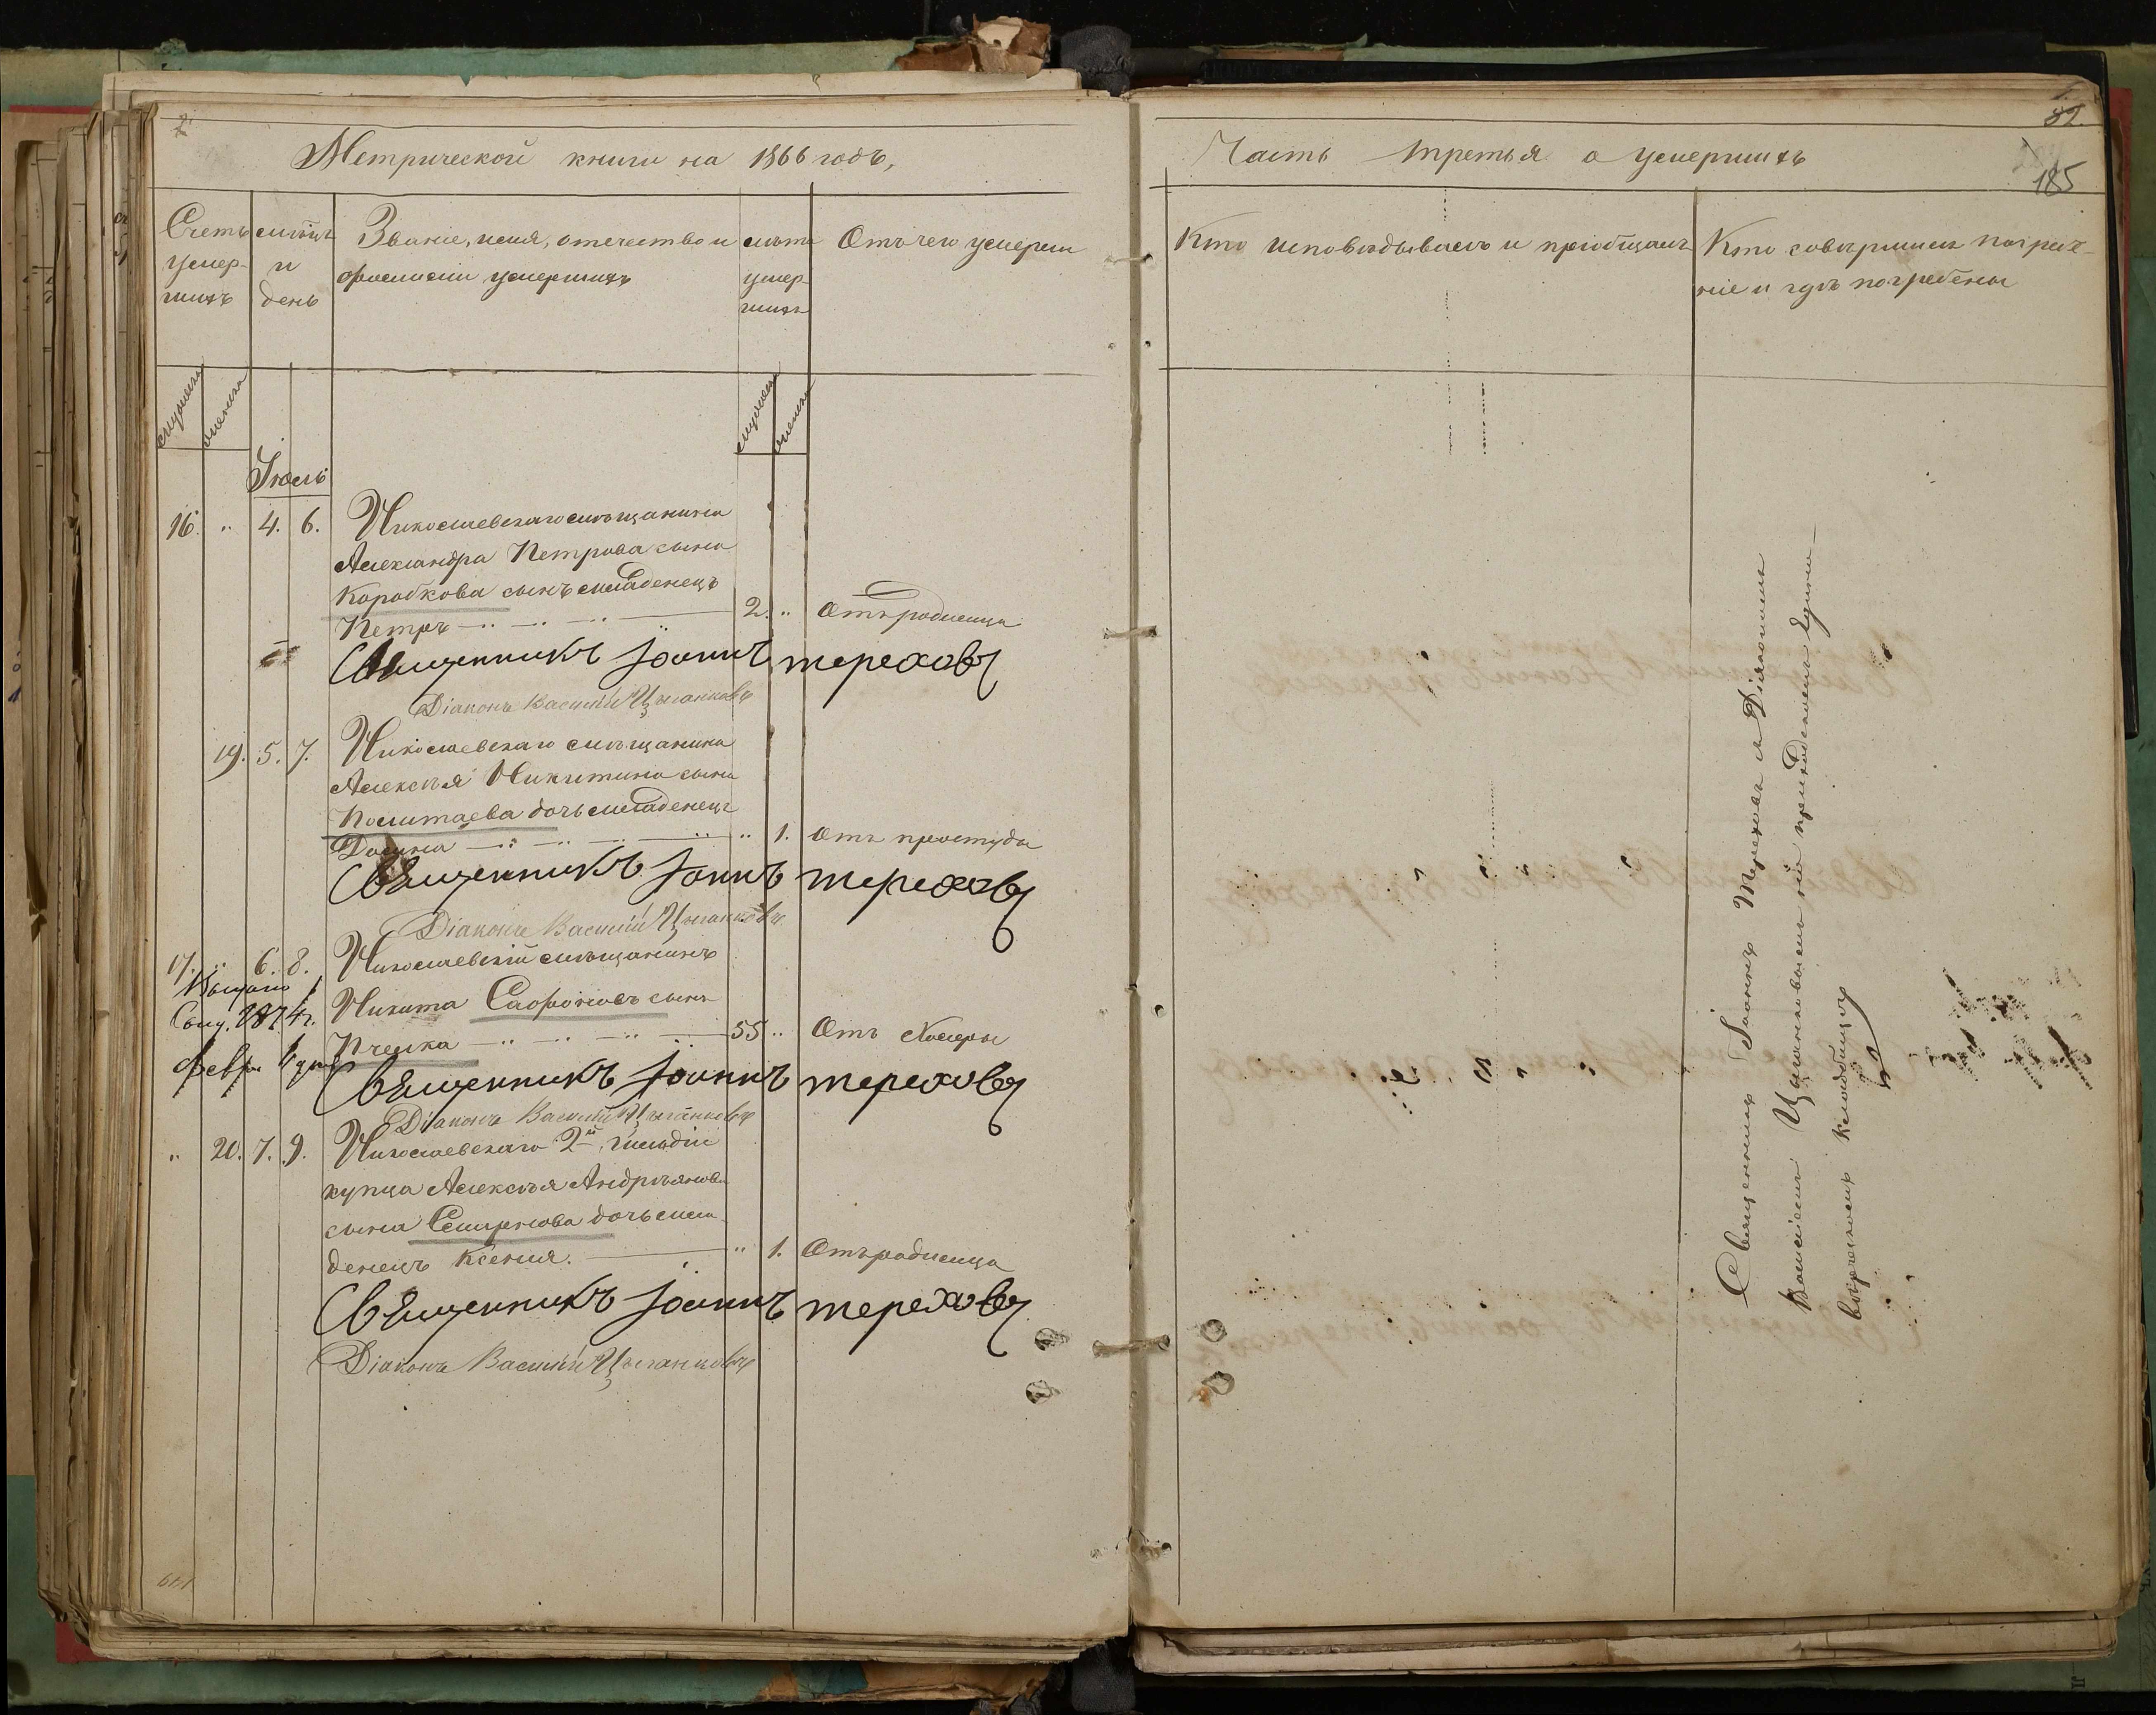 2.
Метрической книги на 1866 годъ,
Счетъ умер-шихъ
мѣсяцъ и день
Званіе, имя, отчество и фамилія умершихъ
лѣта умер-шихъ
Отъ чего умерли
мужеска
женска
мужеска
женска
Іюль
16. " 4. 6. Николаевскаго мѣщанина
Александра Петрова сына
Коробкова сынъ младенецъ
Петръ 2. " Отъ родимца
Священникъ Іоаннъ Тереховъ
Діаконъ Василій Цыганковъ
19. 5. 7. Николаевскаго мѣщанина
Алексѣя Никитина сына
Политаева дочь младенецъ
" 1. Отъ простуды
Священникъ Іоаннъ Тереховъ
Діаконъ Василій Цыганковъ
17. " 6. 8. Николаевскій мѣщанинъ
Никита Сафоновъ сынъ
Пчелка 55 " Отъ холеры
1874 г.
февр.
Священникъ Іоаннъ Тереховъ
Діаконъ Василій Цыганковъ
" 20. 7. 9. Николаевскаго 2й гильдіи
купца Алексѣя Андріянова
сына Смирнова дочь мла-
денецъ Ксенія. " 1. Отъ родимца
Священникъ Іоаннъ Тереховъ
Діаконъ Василій Цыганковъ
82.
185
Часть третья о умершихъ
Кто исповѣдывалъ и пріобщалъ
Кто совершилъ погребе-
ніе и гдѣ погребены
Священникъ Іоаннъ Тереховъ съ Діакономъ
Василіемъ Цыганковымъ на приходскомъ Едино-
вѣрческомъ кладбищѣ